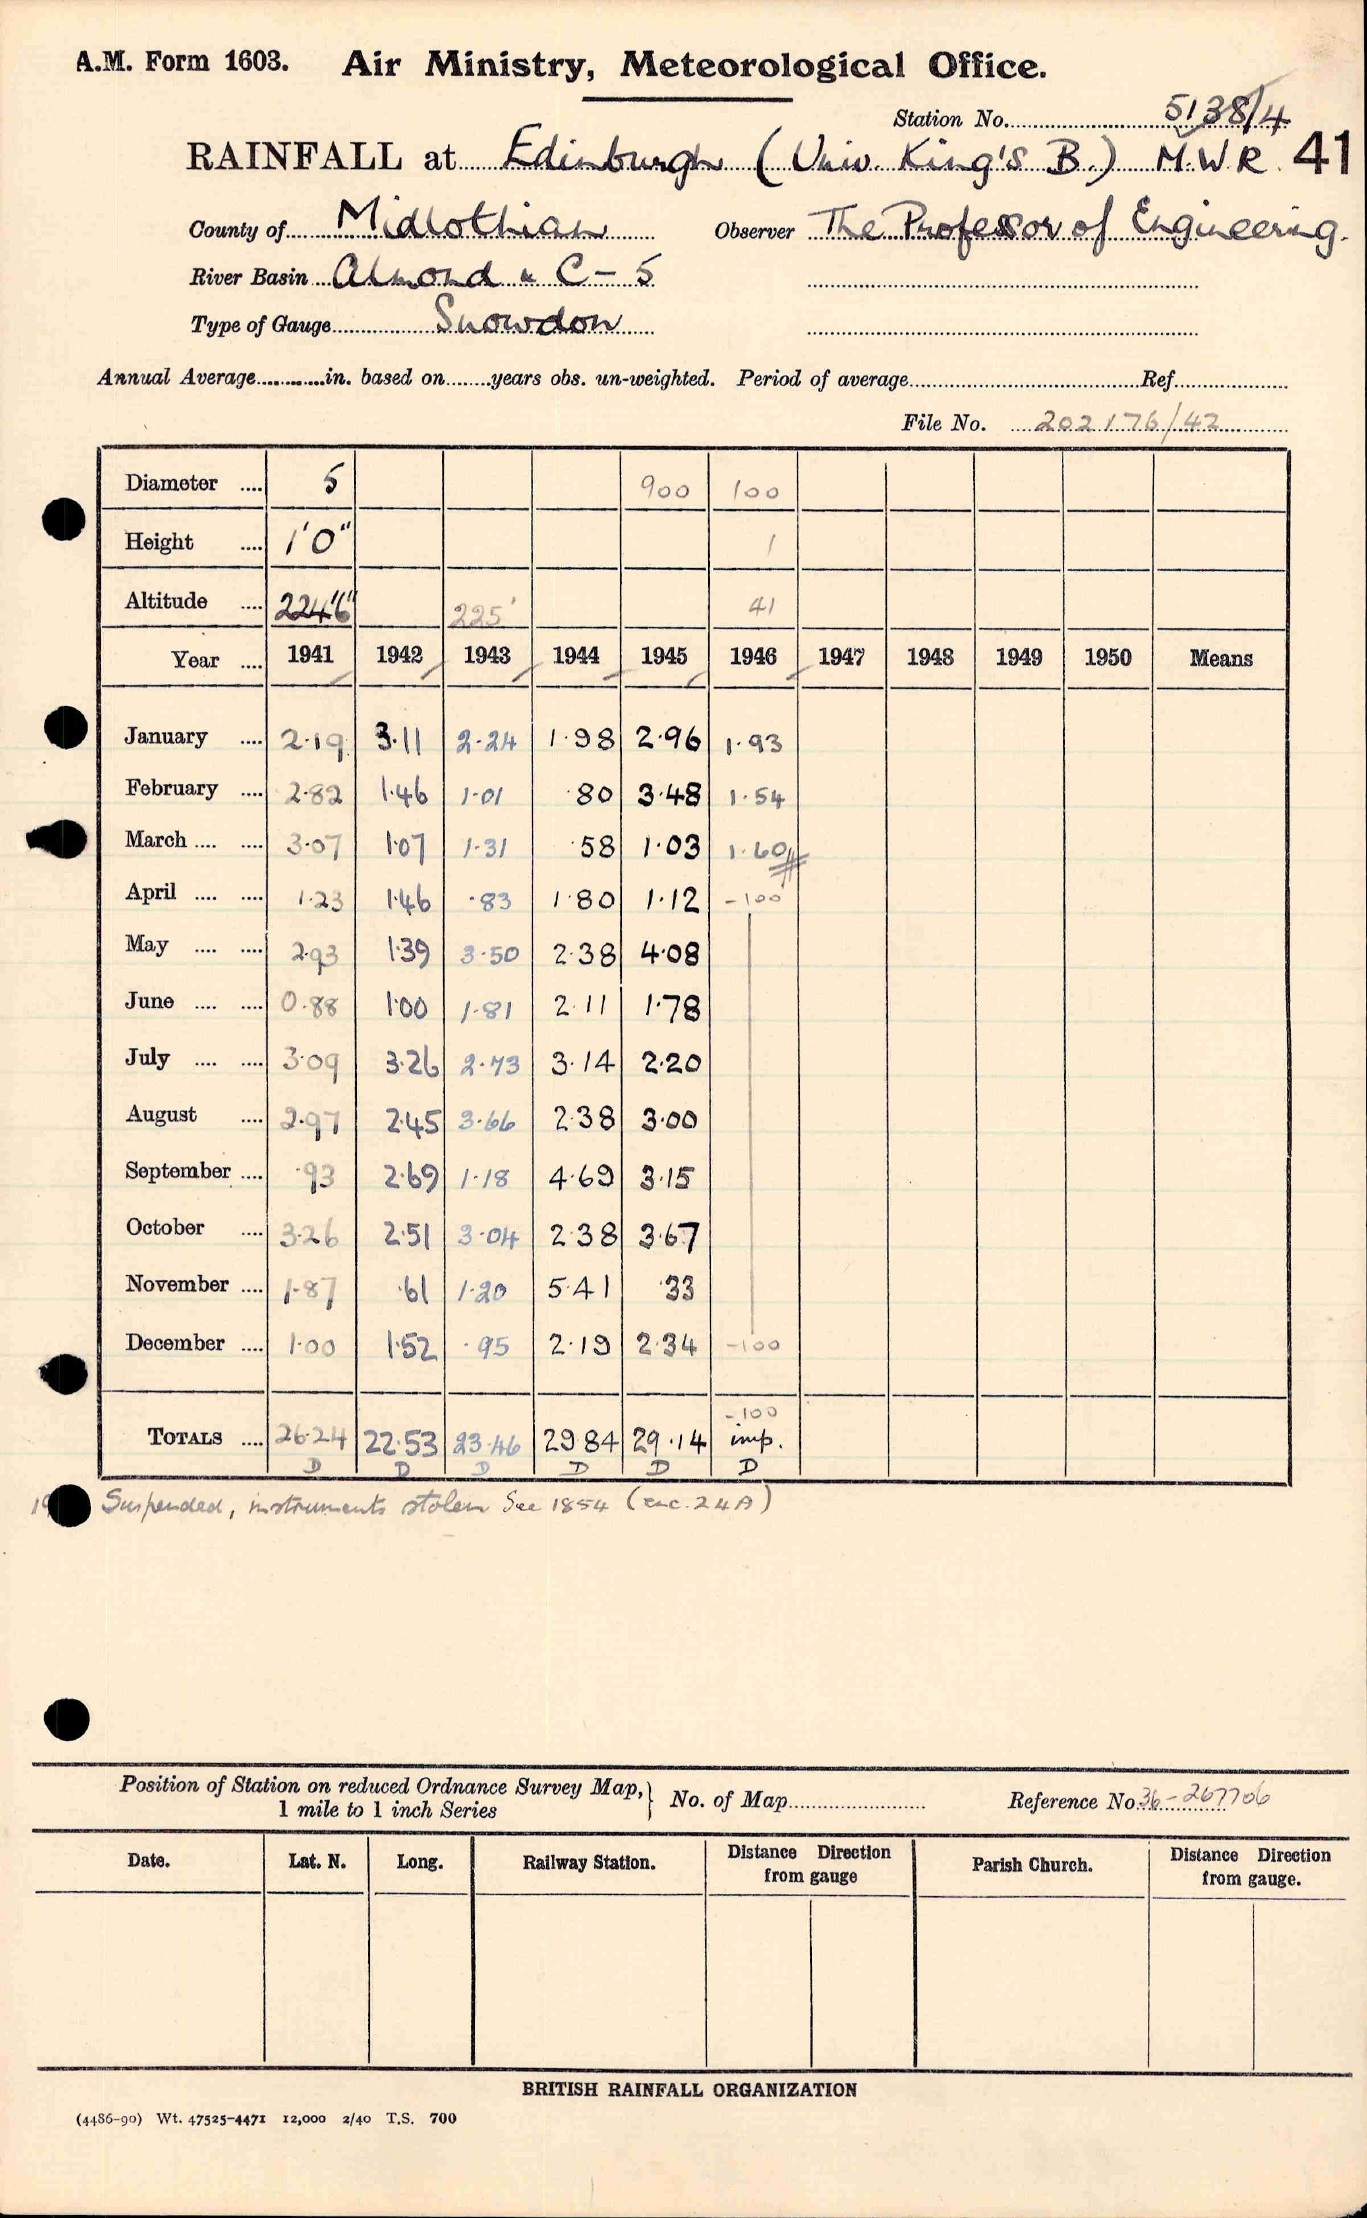 A.M. Form 1603. Air Ministry, Meteorological Office.
Station No. 5138/4
RAINFALL at Edinburgh (Univ. King's B.) M.W.R. 41
County of Midlothian Observer The Professor of Engineering.
River Basin Almond & C - 5
Type of Gauge Snowdon
Annual Average............in. based on........years obs. un-weighted. Period of average........ Ref........
File No. 202176/42
Diameter .... 5 900 100
Height .... 1'0" 1
Altitude .... 224'6" 225' 41
Year .... 1941 1942 1943 1944 1945 1946 1947 1948 1949 1950 Means
January .... 2.19 3.11 2.24 1.98 2.96 1.93
February .... 2.82 1.46 1.01 .80 3.48 1.54
March .... .... 3.07 1.07 1.31 .58 1.03 1.60
April .... .... 1.23 1.46 .83 1.80 1.12 -100
May .... .... 2.93 1.39 3.50 2.38 4.08
June .... .... 0.88 1.00 1.81 2.11 1.78
July .... .... 3.09 3.26 2.73 3.14 2.20
August .... 2.97 2.45 3.66 2.38 3.00
September .... .93 2.69 1.18 4.69 3.15
October .... 3.26 2.51 3.04 2.38 3.67
November .... 1.87 .61 1.20 5.41 .33
December .... 1.00 1.52 .95 2.19 2.34 -100
-100
TOTALS .... 26.24 22.53 23.46 29.84 29.14 imp.
D D D D D D
Suspended, instruments stolen See 1854 (enc. 24A)
Position of Station on reduced Ordnance Survey Map,} No. of Map........ Reference No. 36-267706
1 mile to 1 inch Series
Date. Lat. N. Long. Railway Station. Distance Direction from gauge Parish Church. Distance Direction from gauge.
BRITISH RAINFALL ORGANIZATION
(4486-90) Wt. 47525-4471 12,000 2/40 T.S. 700